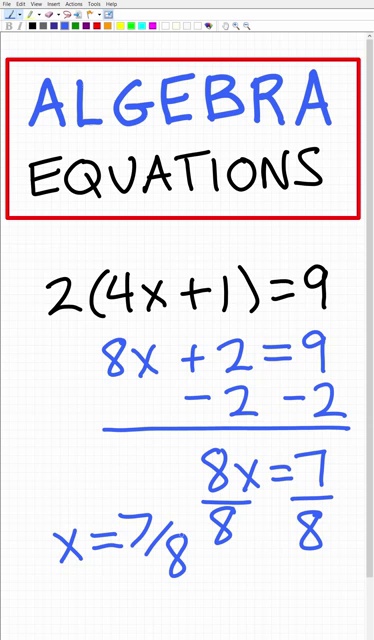 File Edit View Insert Actions Tools Help
ALGEBRA
EQUATIONS
2(4x+1)=9
8x+2=9
-2 -2
8x=7
8 8
x=7/8